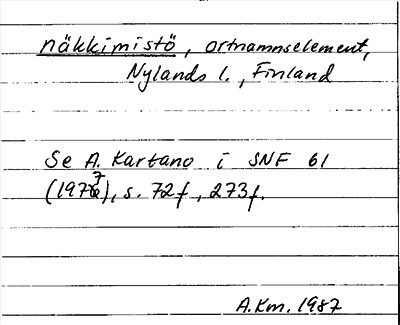 näkkimistö, ortnamnselement,
Nylands l., Finland
Se A. Kartano i SNF 61
(1977), s. 72f, 273f.
A.Km. 1987